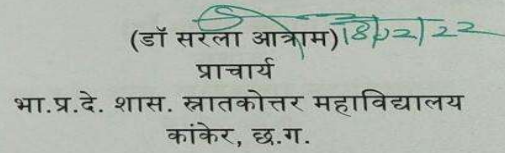 (डॉ सरला आत्राम) 18/02/22
प्राचार्य
भा.प्र.दे. शास. स्नातकोत्तर महाविद्यालय
कांकेर, छ.ग.